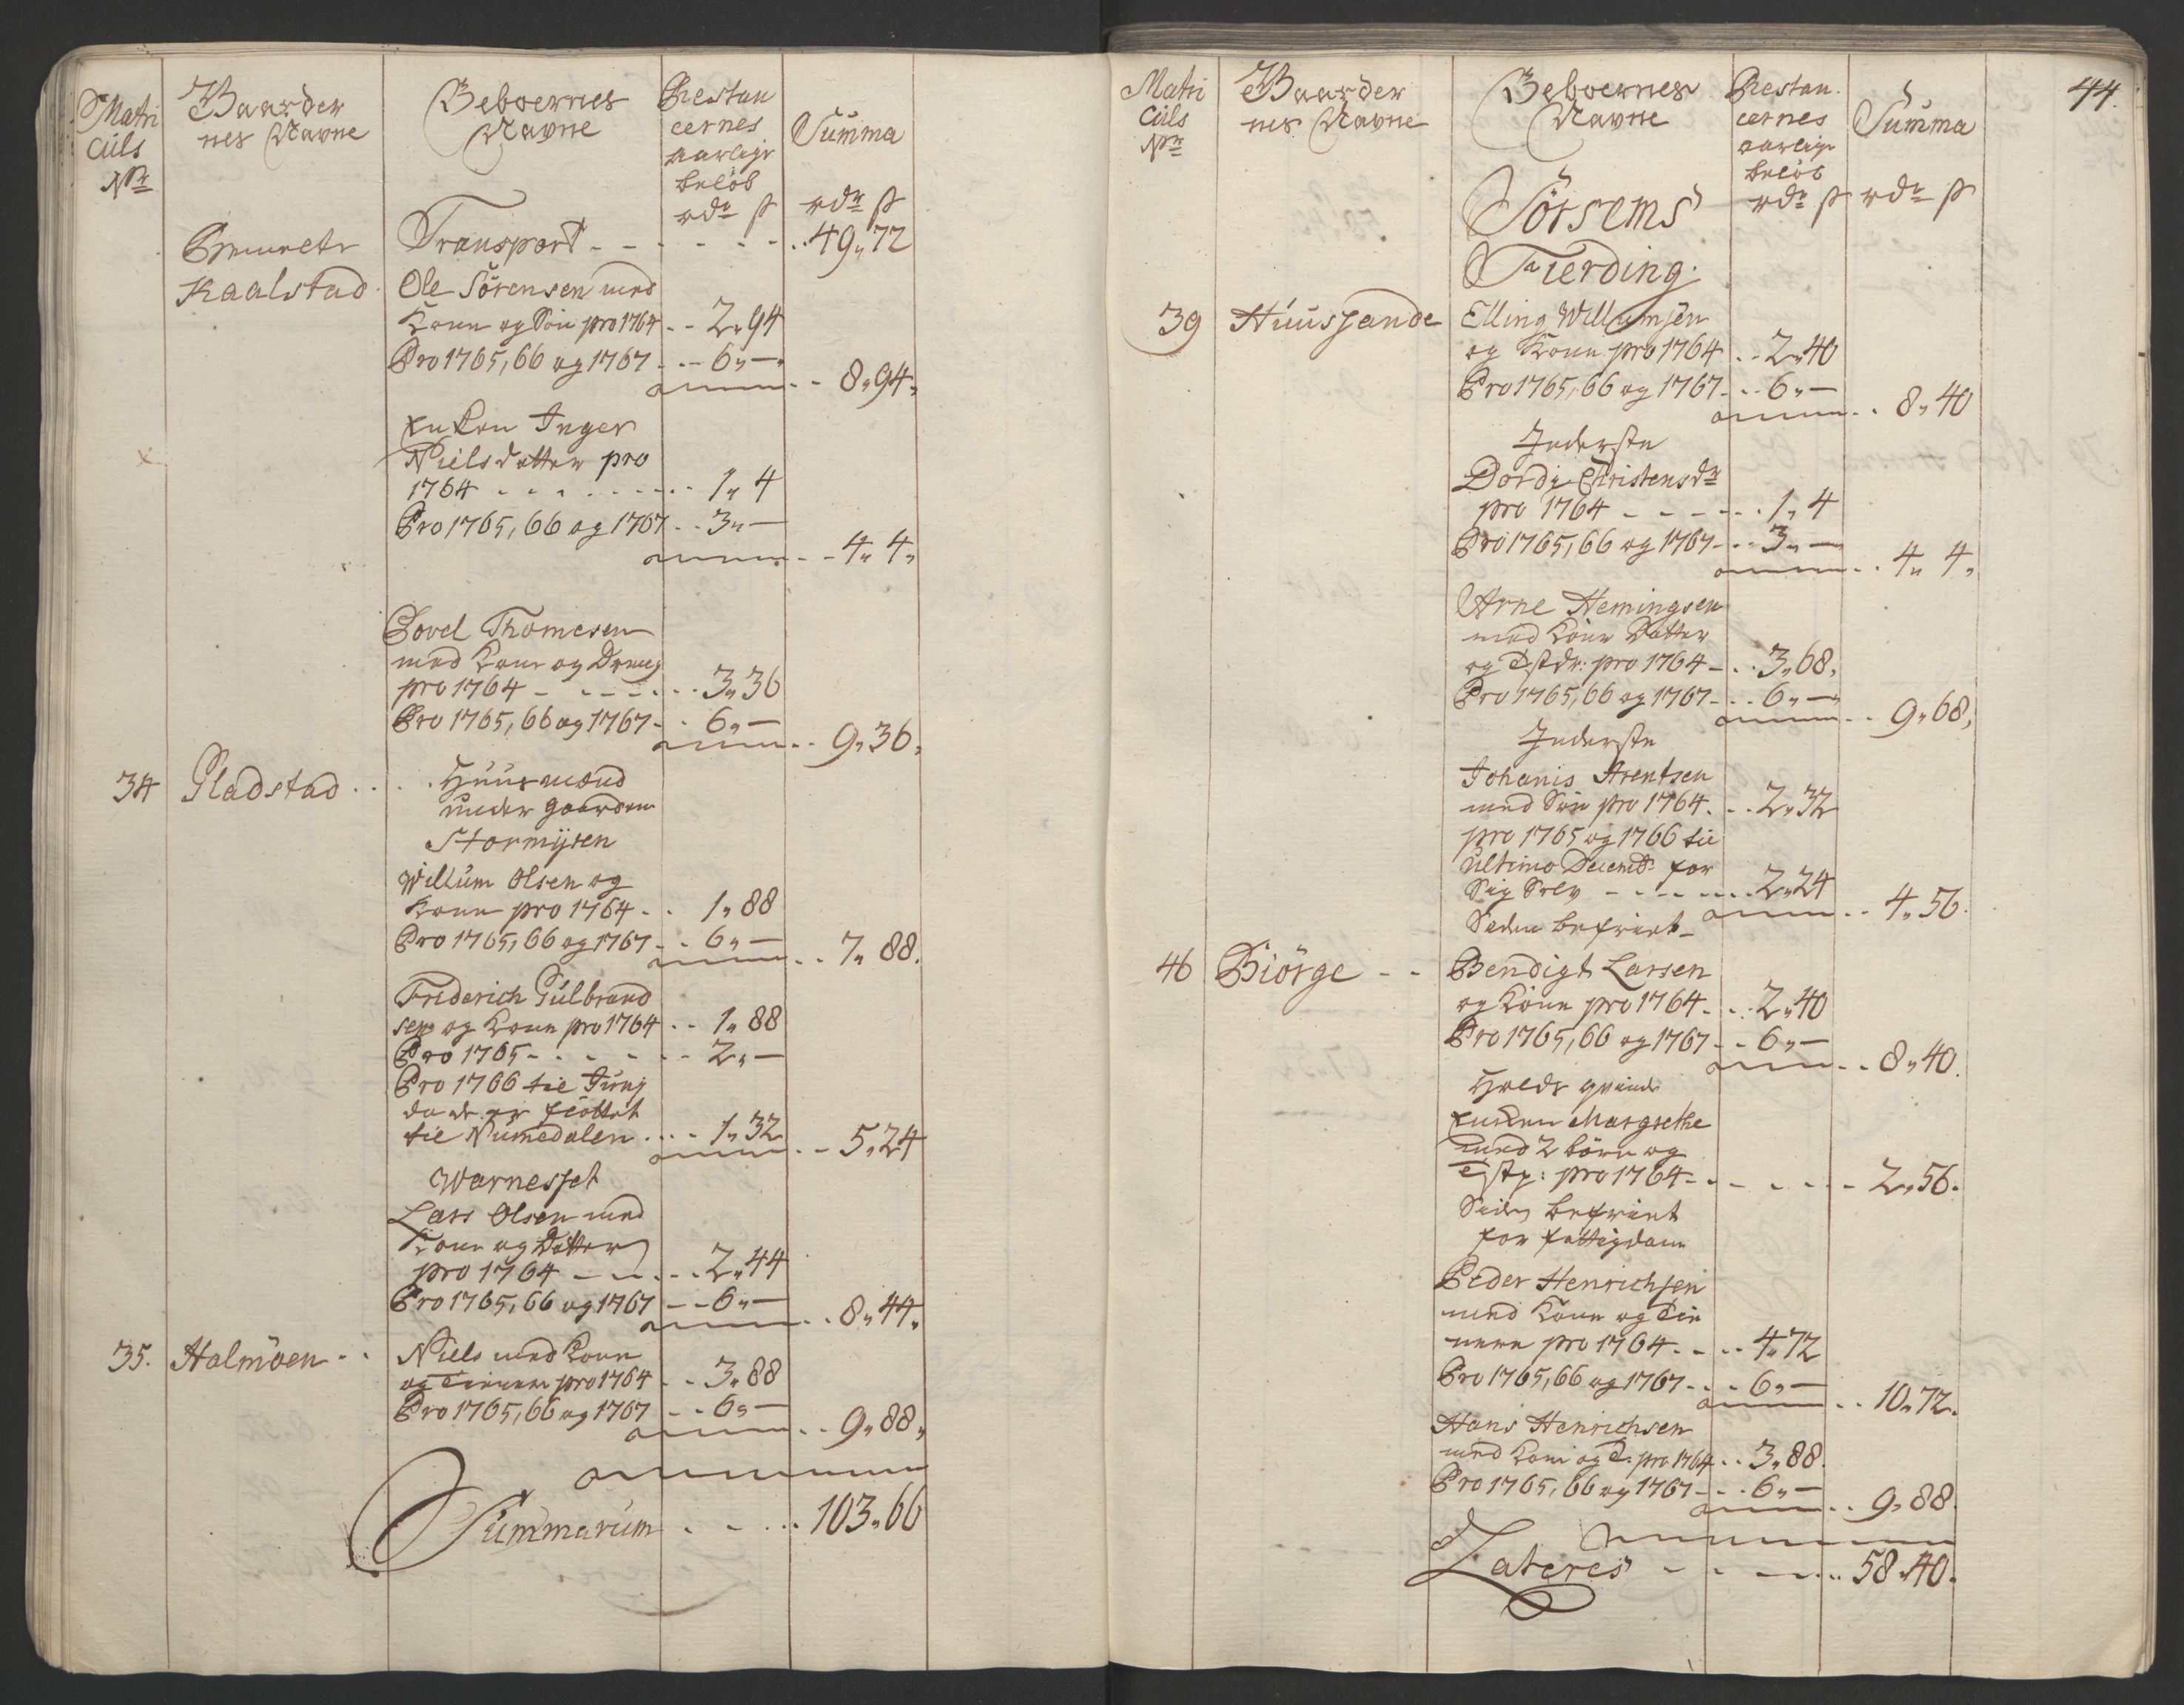 Matri
culs
Nr
Gaarder
nes Navne
Beboernes
Navne
Restan
cernes
aarlige
beløb
rdr ß
Summa
rdr ß
Transport - - - - - - 49 „ 72
Kaalstad
Ole Sörensen med
Kone og Sön pro 1764 - - 2 „ 94
Pro 1765, 66 og 1767 - - 6 „ —
8 „ 94 „
Enken Inger
Nielsdatter pro
1764 - - - - - - - 1 „ 4
Pro 1765, 66 og 1767 - - 3 „ —
4 „ 4 „
Povel Thomesen
med Kone og Dreng
pro 1764 - - - - - 3 „ 36
Pro 1765, 66 og 1767 - - 6 „ —
9 „ 36 „
34 Gladstad - - - Huusmænd
under gaarden
Stormÿren
Willum Olsen og
Kone pro 1764 - - 1 „ 88
Pro 1765, 66 og 1767 - - 6 „ —
7 „ 88.
Friderich Gulbrand
sen og Kone pro 1764 - - 1 „ 88
Pro 1765 - - - - - 2 „ —
Pro 1766 til Junj
da de er flöttet
til Numedalen - - - 1 „ 32
5 „ 24
Warnesset
Lars Olsen med
Kone og Datter
pro 1764 - - - - 2 „ 44
Pro 1765, 66 og 1767 - - 6 „ —
8 „ 44 „
35. Halmöen - - Niels med Kone
og Tienere pro 1764 - - 3 „ 88
Pro 1765, 66 og 1767 - - 6 „ —
9 „ 88 „
Summarum - - - - 103 „ 66
44.
Matri
culs
Nr
Gaarder
nes Navne
Beboernes
Navne
Restan
cernes
aarlige
beløb
rdr ß
Summa
rdr ß
Sörsems
Fierding.
39 Huussande Elling Willumsen
og Kone pro 1764 - - 2 „ 40
Pro 1765, 66 og 1767 - - 6 „ —
8 „ 40
Inderste
Dordi Christensdr
pro 1764 - - - - - 1 „ 4
Pro 1765, 66 og 1767 - - 3 „ —
4 „ 4 „
Arne Hemingsen
med Kone Datter
og Tstdr: pro 1764 - - 3 „ 68 „
Pro 1765, 66 og 1767 - - 6 „ —
9 „ 68 „
Inderste
Johanis Arentsen
med Sön pro 1764 - - 2 „ 32
pro 1765 og 1766 til
Ultimo Decembr for
Sig Selv - - - - - 2 „ 24
4 „ 56.
Siden befriet -
46 Biörge - - Bendigt Larsen
og Kone pro 1764 - - 2 „ 40
Pro 1765, 66 og 1767 - - 6 „ —
8 „ 40.
qvinde
Enken Margrethe
med 2 börn og
pro 1764 - - - - - 2 „ 56.
Siden befriet
for fattigdom
Peder Henrichsen
med Kone og Tie
nere pro 1764 - - - 4 „ 72
Pro 1765, 66 og 1767 - - - 6 „ —
10 „ 72.
Hans Henrichsen
med Kone og T. pro 1764 - - 3 „ 88.
Pro 1765, 66 og 1767 - - - 6 „ —
9 „ 88.
Lateres - - - - - 58 „ 40.